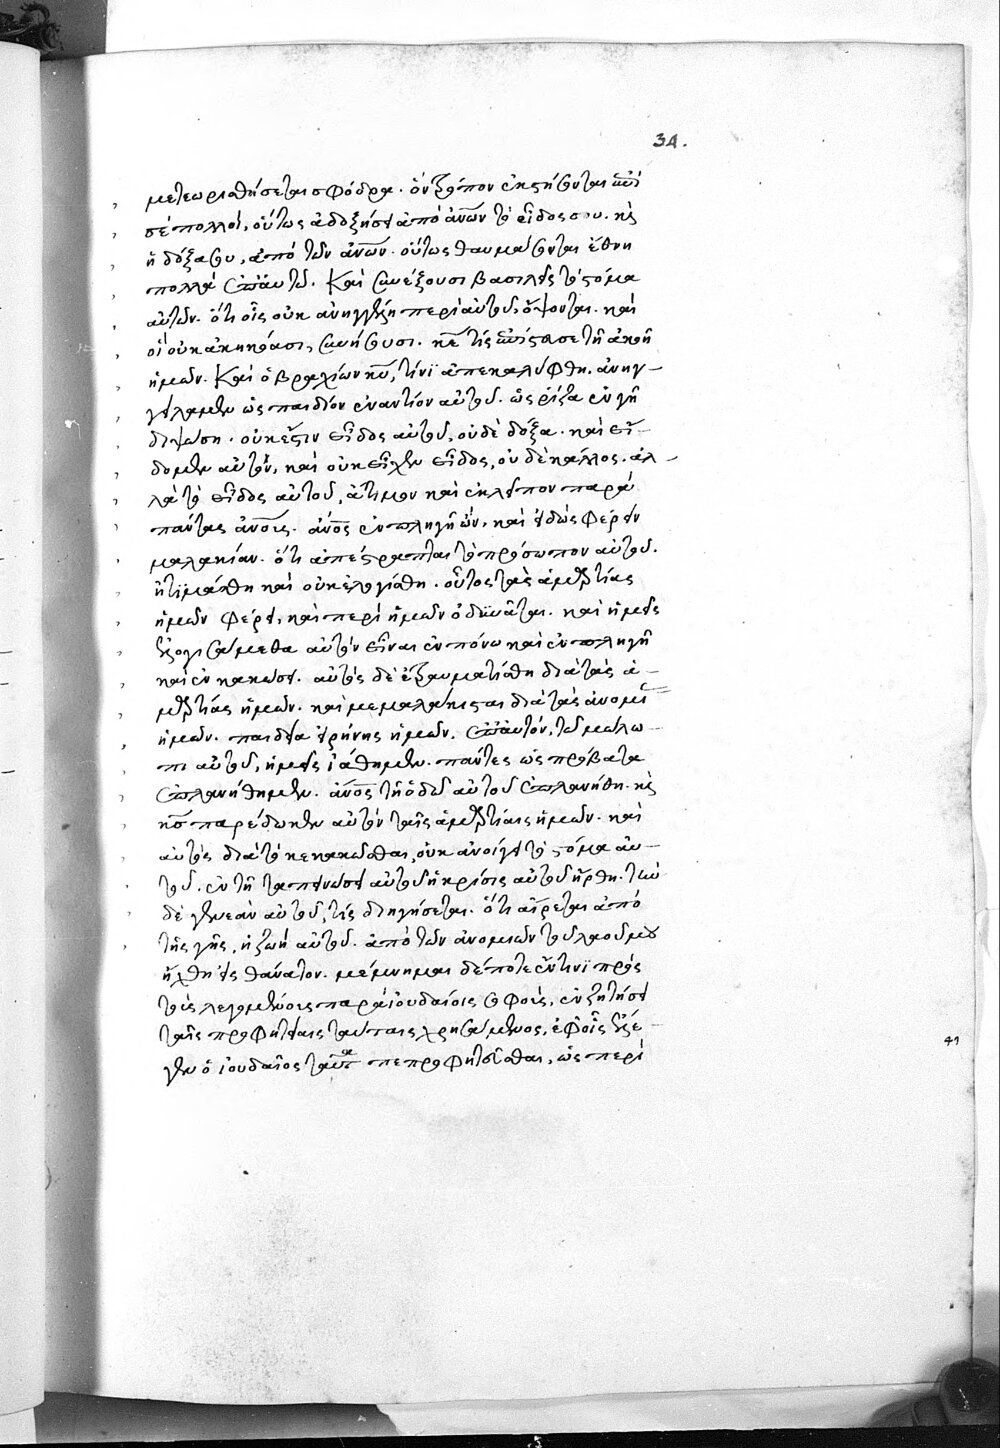 34.
μετεωρισθήσεται σφόδρα. ὃν τρόπον ἐκστήσονται ἐπὶ
σὲ πολλοί, οὕτως ἀδοξήσει ἀπὸ ἀνων τὸ εἶδος σου. κς
ἡ δόξα σου, ἀπὸ τῶν ἀνων. οὕτως θαυμάσονται ἔθνη
πολλὰ ἐπ' αὐτῶ. Καὶ συνέξουσι βασιλεῖς τὸ στόμα
αὐτῶν. ὅτι οἷς οὐκ ἀνηγγέλη περὶ αὐτοῦ, ὄψονται. καὶ
οἳ οὐκ ἀκηκόασι, συνήσουσι. κε τίς ἐπίστευσε τῆ ἀκοῆ
ἡμῶν. Καὶ ὁ βραχίων κυ, τίνϊ ἀπεκαλύφθη. ἀνηγ-
γείλαμεν ὡς παιδίον ἐναντίον αὐτοῦ. ὡς ῥίζα ἐν γῆ
διψώση. οὐκ ἔστιν εἶδος αὐτοῦ, οὐδὲ δόξα. καὶ εἴ-
δομεν αὐτὸν, καὶ οὐκ εἶχεν εἶδος, οὐδὲ κάλλος. ἀλ-
λὰ τὸ εἶδος αὐτοῦ, ἄτιμον καὶ ἐκλεῖπον παρὰ
πάντας ἀνους. ἀνος ἐν πληγῆ ὢν, καὶ εἰδὼς φέρειν
μαλακίαν. ὅτι ἀπέστραπται τὸ πρόσωπον αὐτοῦ.
ἠτϊμάσθη καὶ οὐκ ἐλογίσθη. οὗτος τὰς ἁμαρτίας
ἡμῶν φέρει, καὶ περὶ ἡμῶν ὀδυνᾶται. καὶ ἡμεῖς
ἐλογισάμεθα αὐτὸν εἶναι ἐν πόνω καὶ ἐν πληγῆ
καὶ ἐν κακώσει. αὐτὸς δὲ ἐτραυματίσθη διὰ τὰς ἁ-
μαρτίας ἡμῶν. καὶ μεμαλάκισται διὰ τὰς ἀνομί
ἡμῶν. παιδεία εἰρήνης ἡμῶν. ἐπ' αὐτόν, τῶ μώλω-
πι αὐτοῦ, ἡμεῖς ἰάθημεν. πάντες ὡς πρόβατα
ἐπλανήθημεν. ἀνος τῆ ὁδῶ αὐτοῦ ἐπλανήθη. κς
κς παρέδωκεν αὐτὸν ταῖς ἁμαρτίαις ἡμῶν. καὶ
αὐτὸς διὰ τὸ κεκακῶσθαι, οὐκ ἀνοίγει τὸ στόμα αὐ-
τοῦ. ἐν τῆ ταπεινώσει αὐτοῦ ἡ κρίσις αὐτοῦ ἤρθη. τὴν
δὲ γενεὰν αὐτοῦ, τίς διηγήσεται. ὅτι αἴρεται ἀπὸ
τῆς γῆς, ἡ ζωὴ αὐτοῦ. ἀπὸ τῶν ἀνομιῶν τοῦ λαοῦ μου
ἤχθη εἰς θάνατον. μέμνημαι δέ ποτε ἔν τινϊ πρὸς
τοὺς λεγομένους παρὰ ἰουδαίοις σοφοὺς, ἐν ζητήσει
ταῖς προφητείαις ταύταις χρησάμενος, ἐφ' οἷς ἔλε-
γεν ὁ ἰουδαῖος ταῦτα πεπροφητεῦσθαι, ὡς περὶ
41